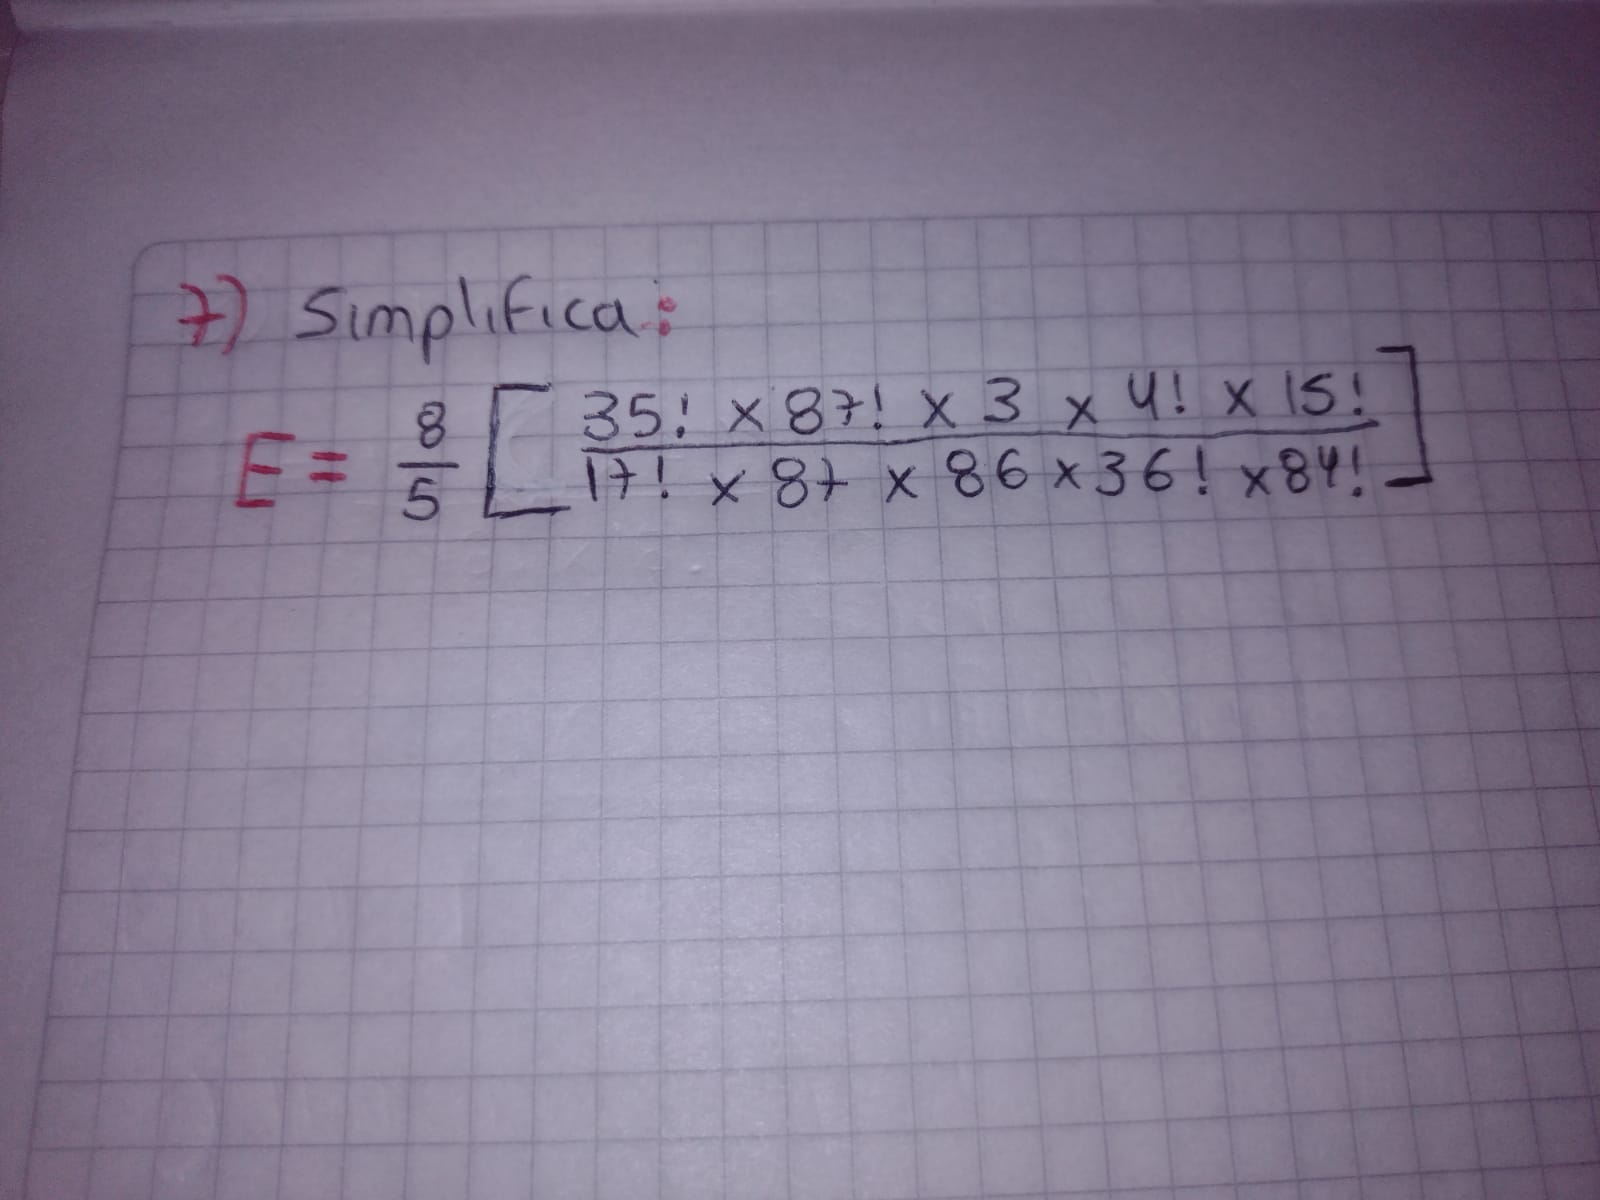 7) Simplifica:
E = 8/5 [ 35! x 87! x 3 x 4! x 15! / 17! x 87 x 86 x 36! x 84! ]